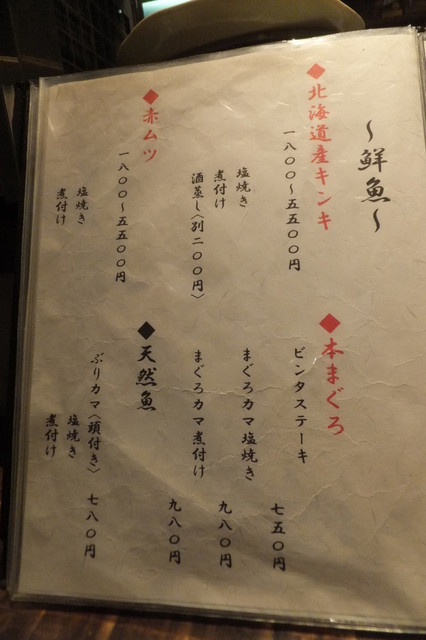 〜鮮魚〜
◆北海道産キンキ
一八〇〇〜五五〇〇円
塩焼き
煮付け
酒蒸し〈別二〇〇円〉
◆赤ムツ
一八〇〇〜五五〇〇円
塩焼き
煮付け
◆本まぐろ
ビンタステーキ 七五〇円
まぐろカマ塩焼き 九八〇円
まぐろカマ煮付け 九八〇円
◆天然魚
ぶりカマ〈頭付き〉 七八〇円
塩焼き
煮付け